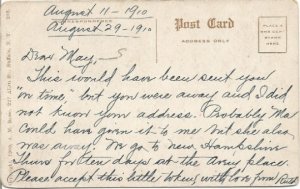 August 11 - 1910
CORRESPONDENCE
Post Card
August 29 - 1910
PLACE
STAMP
HERE
Dear May, -
This would have been sent you
"on time" but you were away and I did
not know your address. Probably Ma
could have given it to me but she also
was away. We go to new Hampshire
Thurs for ten days at the Avery place.
Please accept this little token with love from